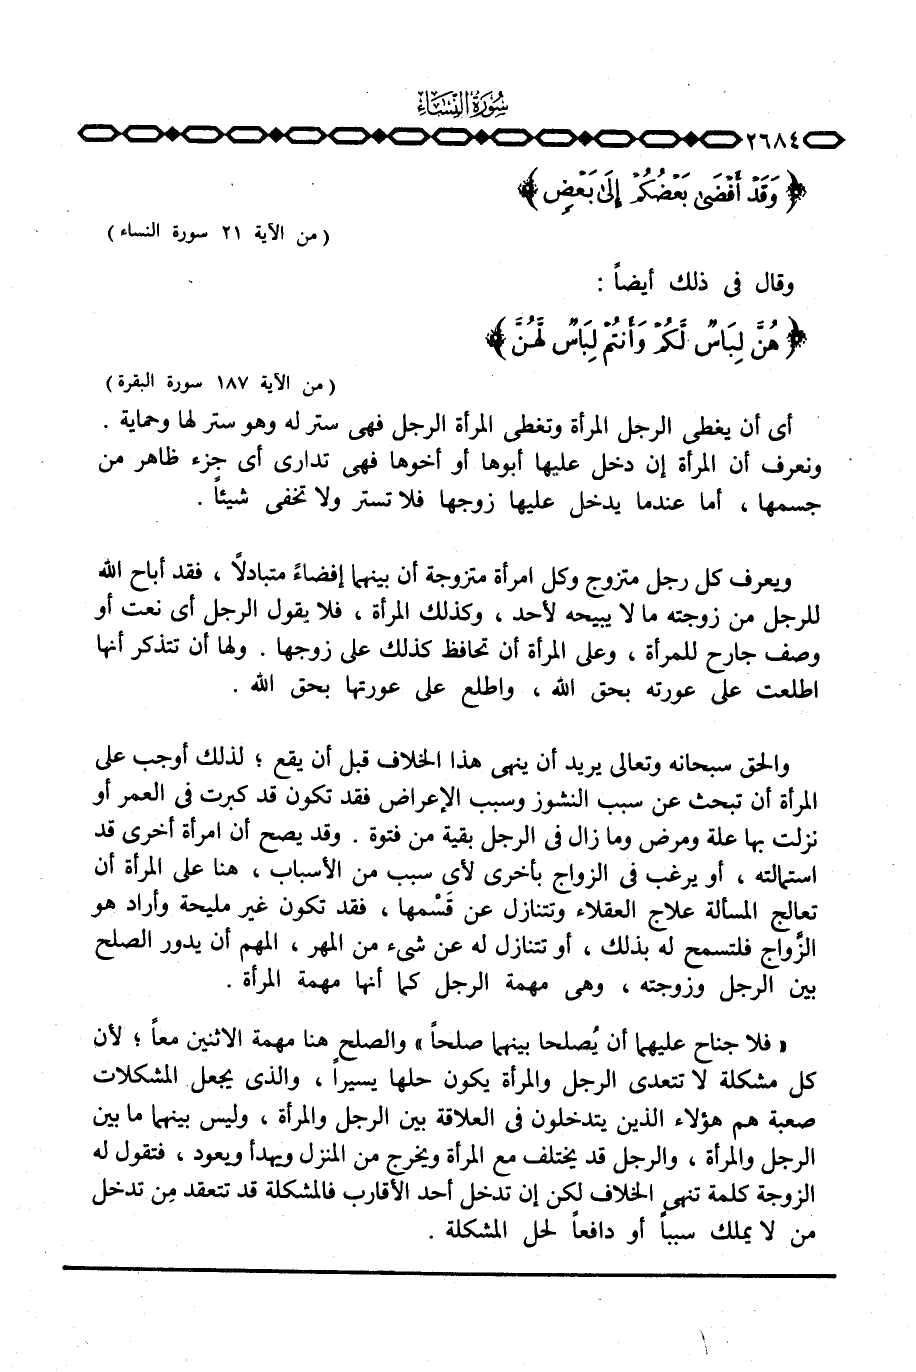 سُورَةُ النِّسَاءِ
٢٦٨٤
﴿ وَقَدْ أَفْضَىٰ بَعْضُكُمْ إِلَىٰ بَعْضٍ ﴾
( من الآية ٢١ سورة النساء )
وقال فى ذلك أيضاً :
﴿ هُنَّ لِبَاسٌ لَّكُمْ وَأَنتُمْ لِبَاسٌ لَّهُنَّ ﴾
( من الآية ١٨٧ سورة البقرة )
أى أن يغطى الرجل المرأة وتغطى المرأة الرجل فهى ستر له وهو ستر لها وحماية .
ونعرف أن المرأة إن دخل عليها أبوها أو أخوها فهى تدارى أى جزء ظاهر من
جسمها ، أما عندما يدخل عليها زوجها فلا تستر ولا تخفى شيئاً .
ويعرف كل رجل متزوج وكل امرأة متزوجة أن بينهما إفضاءً متبادلاً ، فقد أباح الله
للرجل من زوجته ما لا يبيحه لأحد ، وكذلك المرأة ، فلا يقول الرجل أى نعت أو
وصف جارح للمرأة ، وعلى المرأة أن تحافظ كذلك على زوجها . ولها أن تتذكر أنها
اطلعت على عورته بحق الله ، واطلع على عورتها بحق الله .
والحق سبحانه وتعالى يريد أن ينهى هذا الخلاف قبل أن يقع ؛ لذلك أوجب على
المرأة أن تبحث عن سبب النشوز وسبب الإعراض فقد تكون قد كبرت فى العمر أو
نزلت بها علة ومرض وما زال فى الرجل بقية من فتوة . وقد يصح أن امرأة أخرى قد
استمالته ، أو يرغب فى الزواج بأخرى لأى سبب من الأسباب ، هنا على المرأة أن
تعالج المسألة علاج العقلاء وتتنازل عن قَسْمها ، فقد تكون غير مليحة وأراد هو
الزَّواج فلتسمح له بذلك ، أو تتنازل له عن شىء من المهر ، المهم أن يدور الصلح
بين الرجل وزوجته ، وهى مهمة الرجل كما أنها مهمة المرأة .
« فلا جناح عليهما أن يُصلحا بينهما صلحاً » والصلح هنا مهمة الاثنين معاً ؛ لأن
كل مشكلة لا تتعدى الرجل والمرأة يكون حلها يسيراً ، والذى يجعل المشكلات
صعبة هم هؤلاء الذين يتدخلون فى العلاقة بين الرجل والمرأة ، وليس بينهما ما بين
الرجل والمرأة ، والرجل قد يختلف مع المرأة ويخرج من المنزل ويهدأ ويعود ، فتقول له
الزوجة كلمة تنهى الخلاف لكن إن تدخل أحد الأقارب فالمشكلة قد تتعقد مِن تدخل
من لا يملك سبباً أو دافعاً لحل المشكلة .